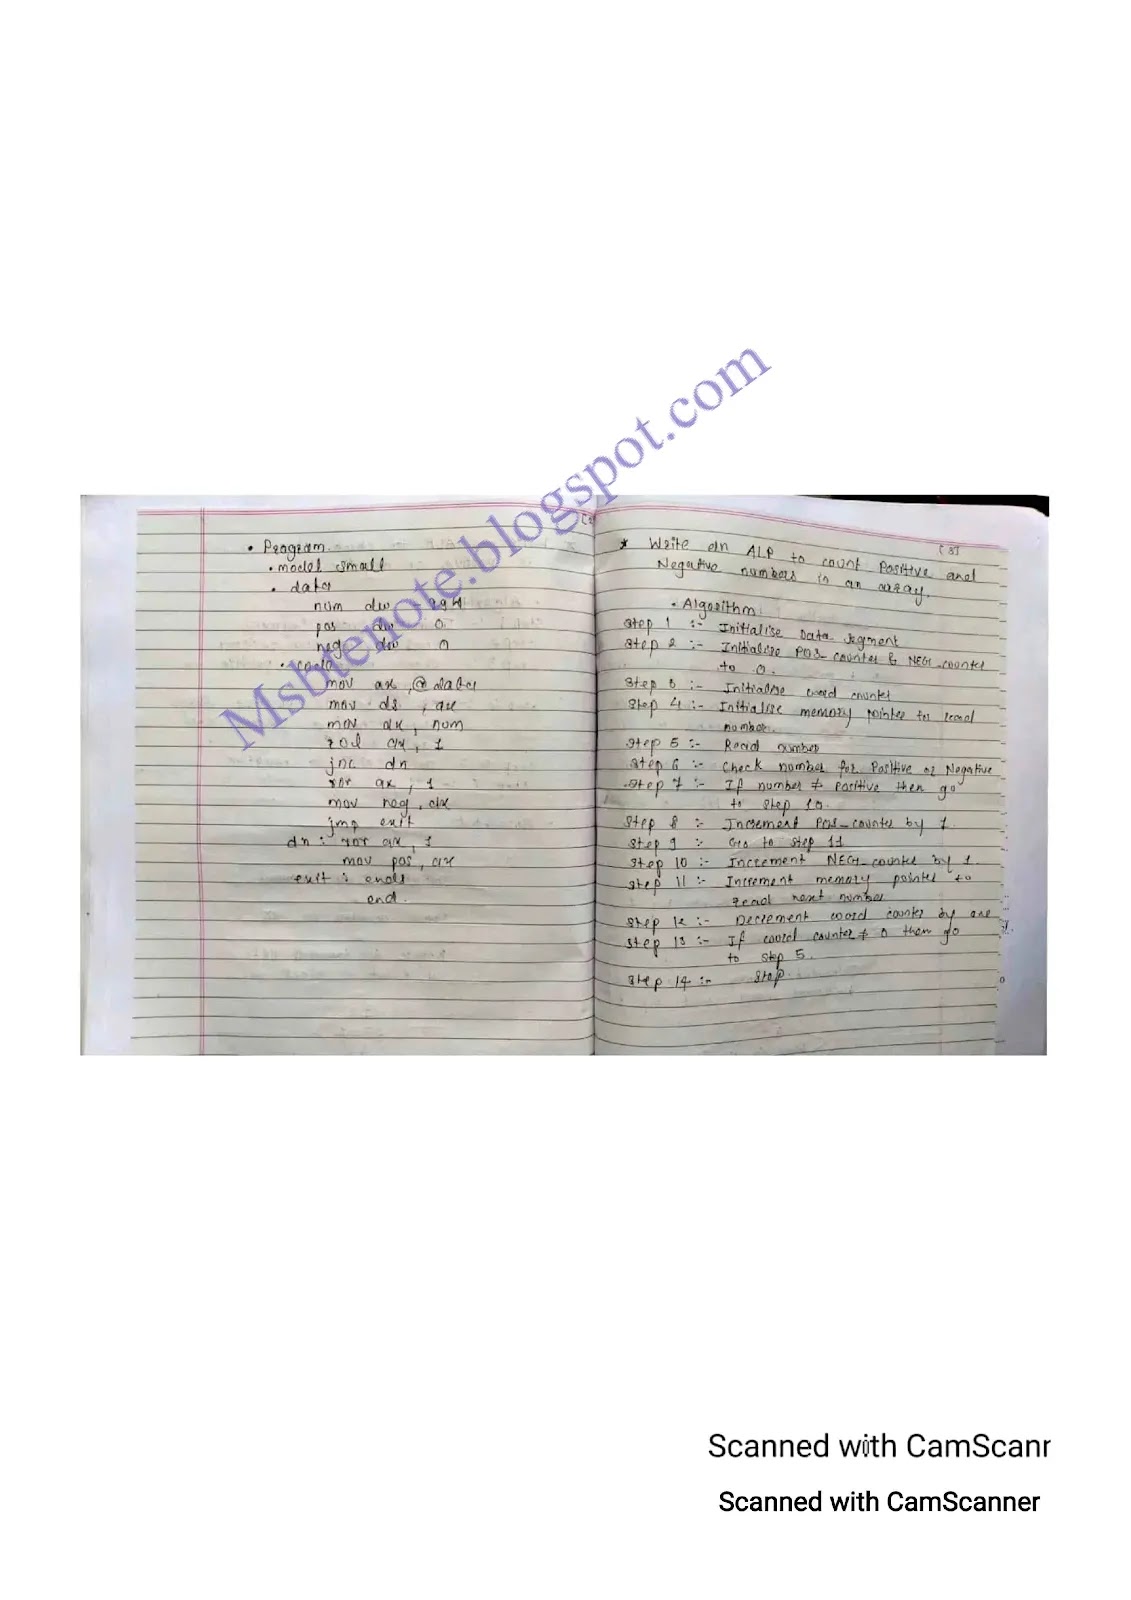 • Program.
• model small
• data
num dw
pos dw 0
neg dw 0
• code
mov ax, @data
mov ds, ax
mov ax, num
rol ax, 1
jnc dn
ror ax, 1
mov neg, ax
jmp exit
dn : ror ax, 1
mov pos, ax
exit : ends
end.
[8]
* Write an ALP to count Positive and
Negative numbers in an array.
• Algorithm.
Step 1 :- Initialise Data Segment
Step 2 :- Initialise POS_counter & NEG_counter
to 0.
Step 3 :- Initialise word counter
Step 4 :- Initialise memory pointer to read
number.
Step 5 :- Read number
Step 6 :- Check number for Positive or Negative
Step 7 :- If number ≠ Positive then go
to step 10.
Step 8 :- Increment POS_counter by 1.
Step 9 :- Go to step 11
Step 10 :- Increment NEG_counter by 1.
Step 11 :- Increment memory pointer to
read next number
Step 12 :- Decrement word counter by one
Step 13 :- If word counter ≠ 0 then go
to step 5.
Step 14 :- Stop.
Msbtenote.blogspot.com
Scanned with CamScanr
Scanned with CamScanner